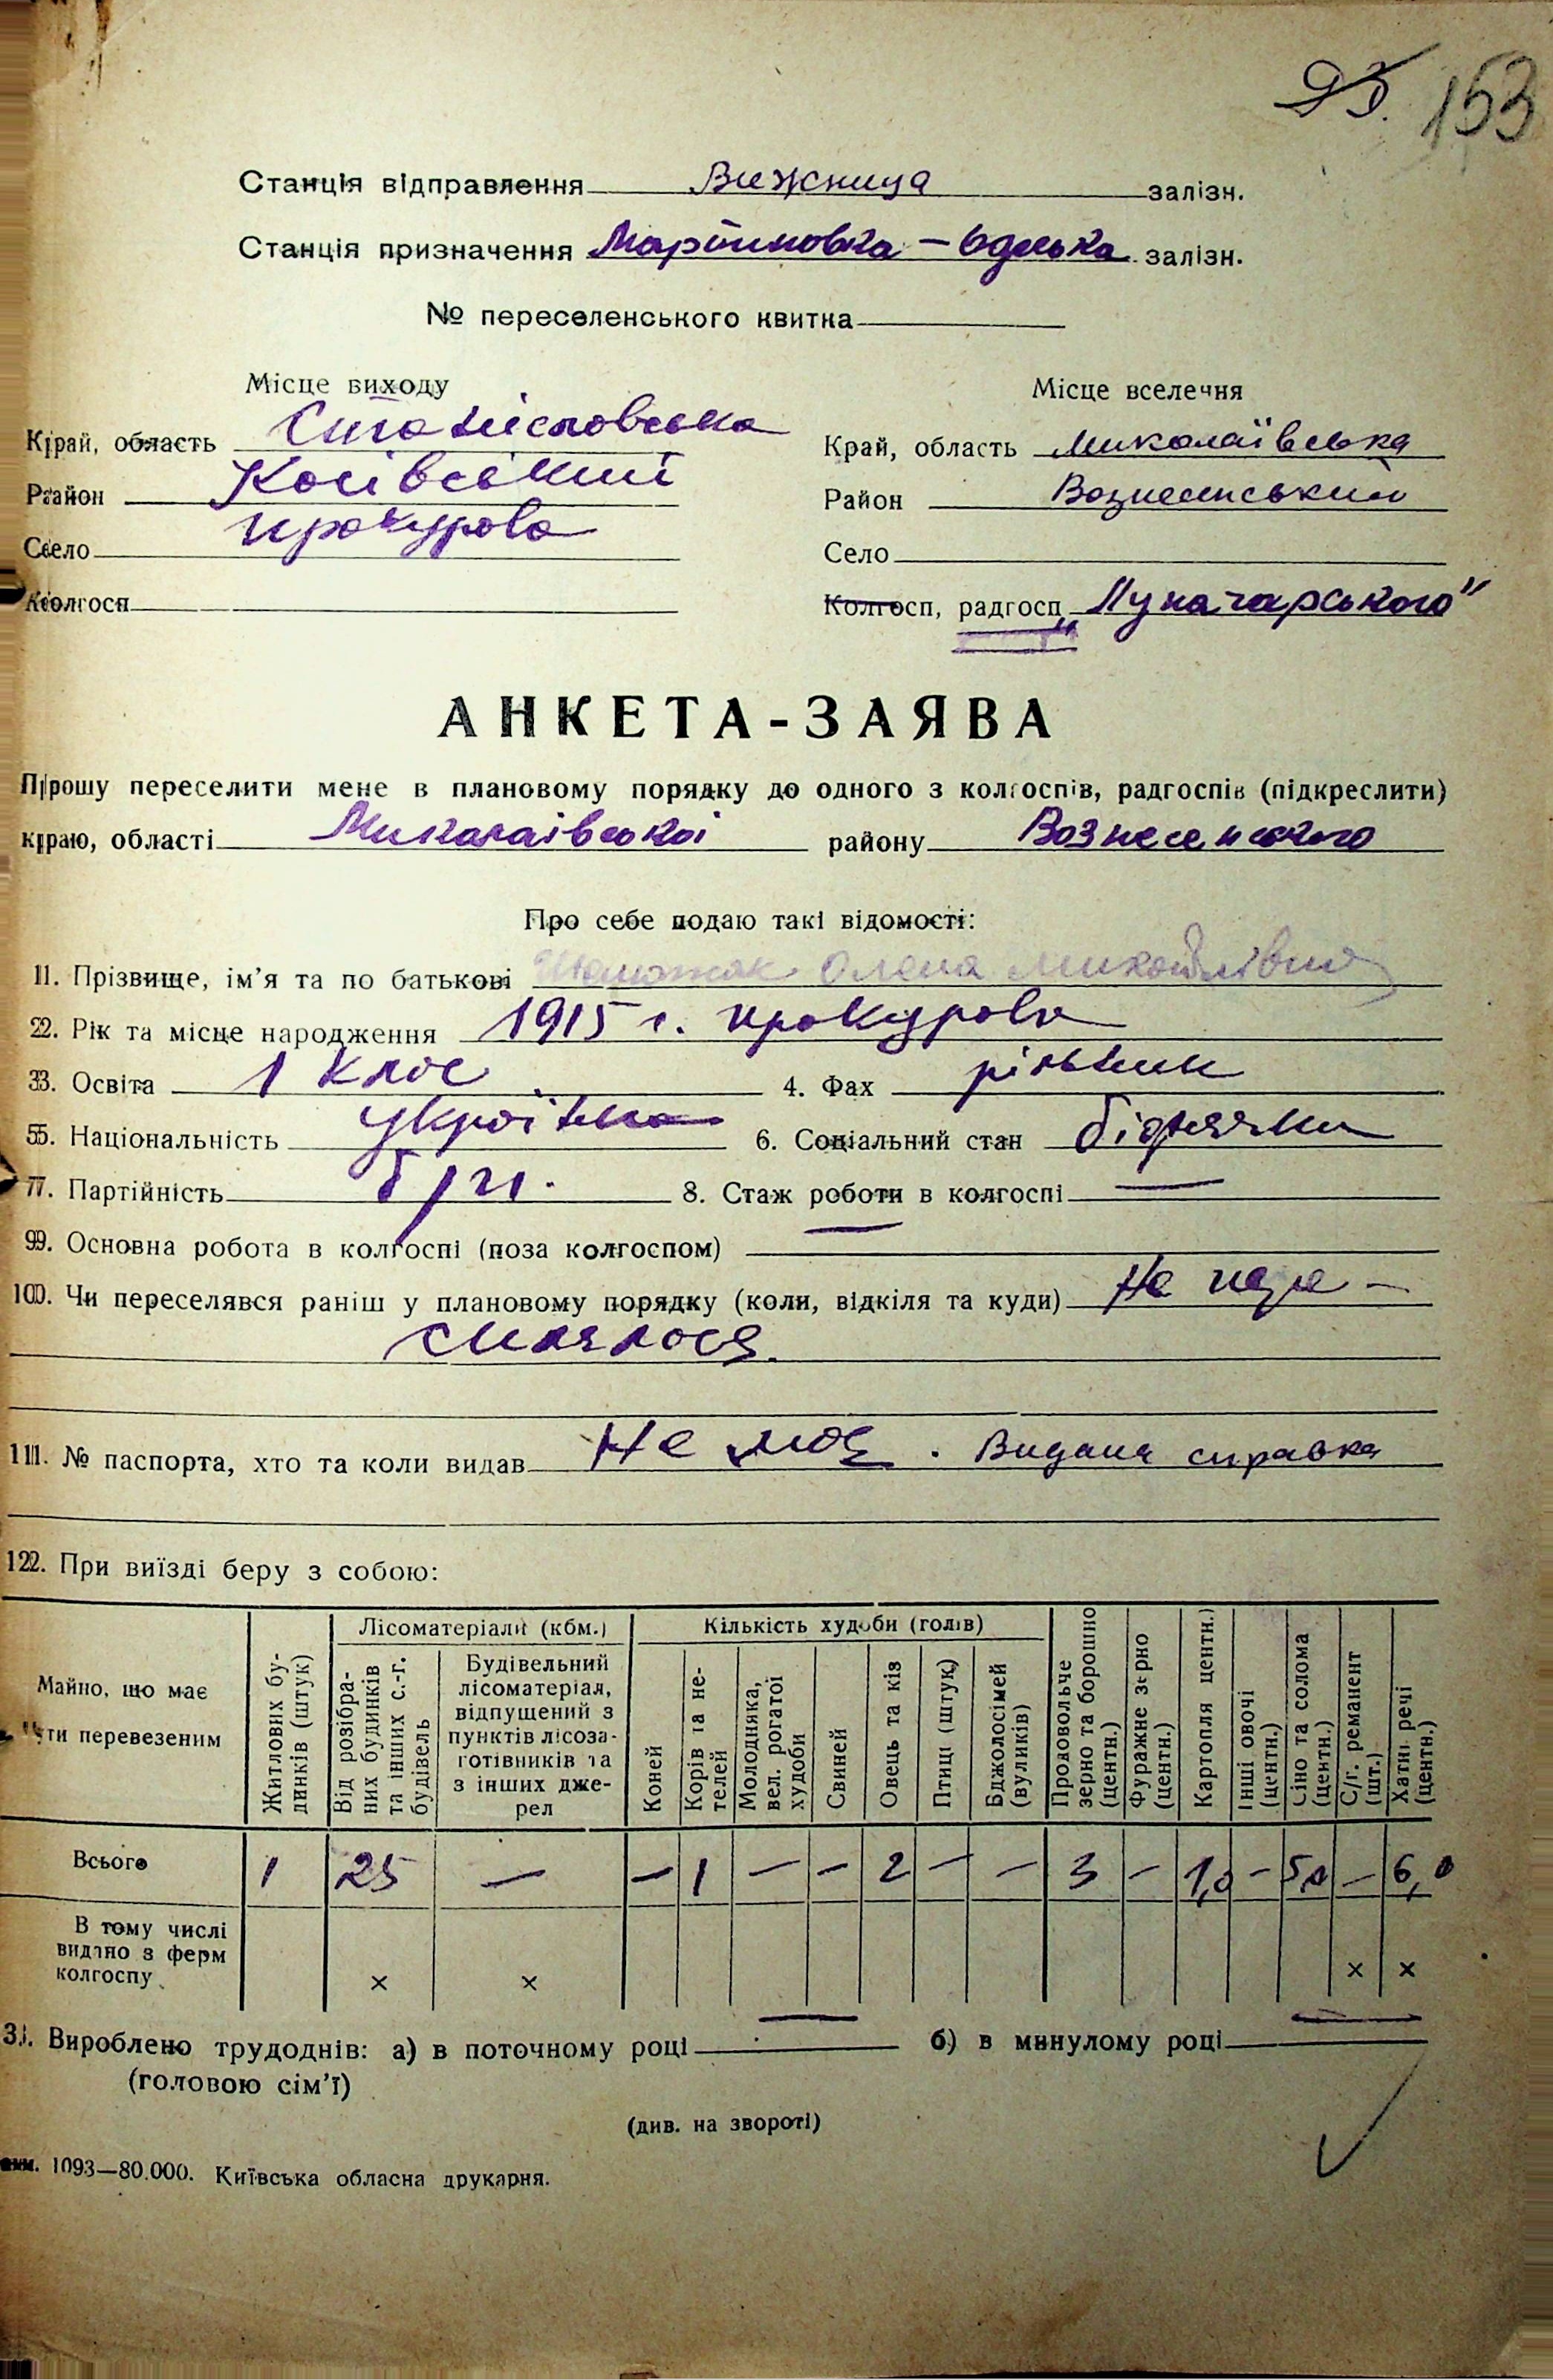 153
Станція відправлення Вижниця залізн.
Станція призначення Мартиновка – Одеська залізн.
№ переселенського квитка
Місце виходу Місце вселення
Край, область Станіславська Край, область Миколаївська
Район Косівський Район Вознесенський
Село Прокурава Село
Колгосп Колгосп, радгосп „Луначарського"
АНКЕТА-ЗАЯВА
Прошу переселити мене в плановому порядку до одного з колгоспів, радгоспів (підкреслити)
краю, області Миколаівської району Вознесенского
Про себе подаю такі відомості:
1. Прізвище, ім'я та по батькові Олена Михайлівна
2. Рік та місце народження 1915 г. Прокурава
3. Освіта 1 клас 4. Фах рільник
5. Національність українка 6. Соціальний стан біднячка
7. Партійність б/п. 8. Стаж роботи в колгоспі —
9. Основна робота в колгоспі (поза колгоспом) —
10. Чи переселявся раніш у плановому порядку (коли, відкіля та куди) Не пере–
силялося.
11. № паспорта, хто та коли видав Не має. Видана справка
12. При виїзді беру з собою:
Майно, що має бути перевезеним
Житлових будинків (штук)
Лісоматеріали (кбм.)
Від розібраних будинків та інших с.-г. будівель
Будівельний лісоматеріал, відпущений з пунктів лісозаготівників та з інших джерел
Кількість худоби (голів)
Коней
Корів та нетелей
Молодняка, вел. рогатої худоби
Свиней
Овець та кіз
Птиці (штук)
Бджолосімей (вуликів)
Продовольче зерно та борошно (центн.)
Фуражне зерно (центн.)
Картопля центн.)
Інші овочі (центн.)
Сіно та солома (центн.)
С/г. реманент (шт.)
Хатні речі (центн.)
Всього 1 25 — — 1 — — 2 — — 3 — 1,0 — 5,0 — 6,0
В тому числі видано з ферм колгоспу × × × ×
3. Вироблено трудоднів: а) в поточному році — б) в минулому році —
(головою сім'ї)
(див. на звороті)
1093—80.000. Київська обласна друкарня.